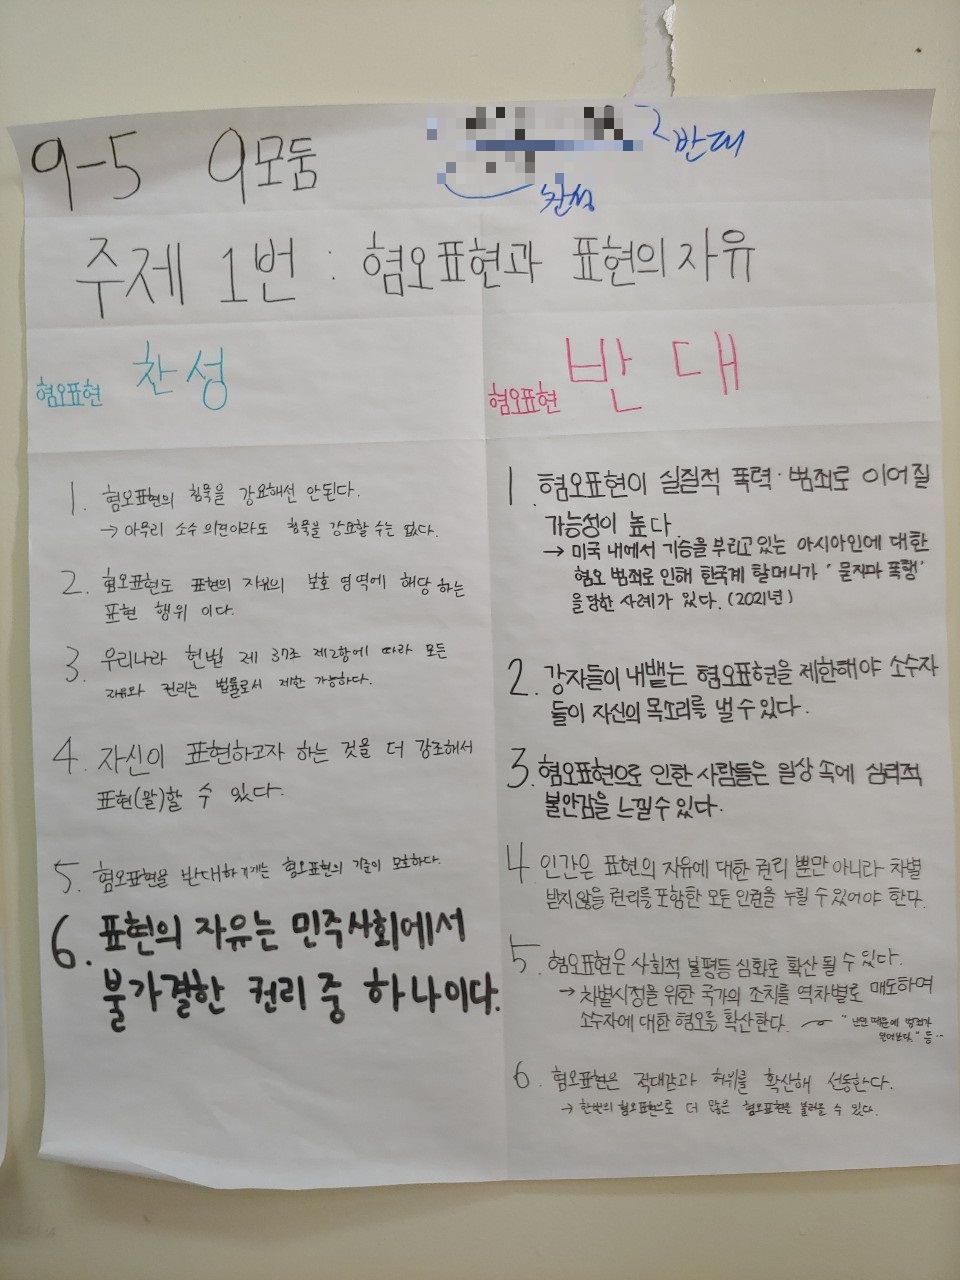 9-5 9모둠
반대
찬성
주제 1번 : 혐오표현과 표현의 자유
혐오표현 찬성
1. 혐오표현의 침묵을 강요해선 안된다.
→ 아무리 소수 의견이라도 침묵을 강요할 수는 없다.
2. 혐오표현도 표현의 자유의 보호 영역에 해당 하는
표현 행위 이다.
3. 우리나라 헌법 제 37조 제2항에 따라 모든
자유와 권리는 법률로서 제한 가능하다.
4. 자신이 표현하고자 하는 것을 더 강조해서
표현(말)할 수 있다.
5. 혐오표현을 반대하기에는 혐오표현의 기준이 모호하다.
6. 표현의 자유는 민주사회에서
불가결한 권리 중 하나이다.
혐오표현 반대
1 혐오표현이 실질적 폭력·범죄로 이어질
가능성이 높다.
→ 미국 내에서 기승을 부리고 있는 아시아인에 대한
혐오 범죄로 인해 한국계 할머니가 '묻지마 폭행'
을 당한 사례가 있다. (2021년)
2. 강자들이 내뱉는 혐오표현을 제한해야 소수자
들이 자신의 목소리를 낼 수 있다.
3. 혐오표현으로 인한 사람들은 일상 속에 심리적
불안감을 느낄 수 있다.
4 인간은 표현의 자유에 대한 권리 뿐만 아니라 차별
받지 않을 권리를 포함한 모든 인권을 누릴 수 있어야 한다.
5. 혐오표현은 사회적 불평등 심화로 확산 될 수 있다.
→ 차별시정을 위한 국가의 조치를 역차별로 매도하며
소수자에 대한 혐오를 확산한다.
"난민 때문에 범죄가
일어난다." 등..
6. 혐오표현은 적대감과 허위를 확산해 선동한다.
→ 한번의 혐오표현으로 더 많은 혐오표현을 불러올 수 있다.